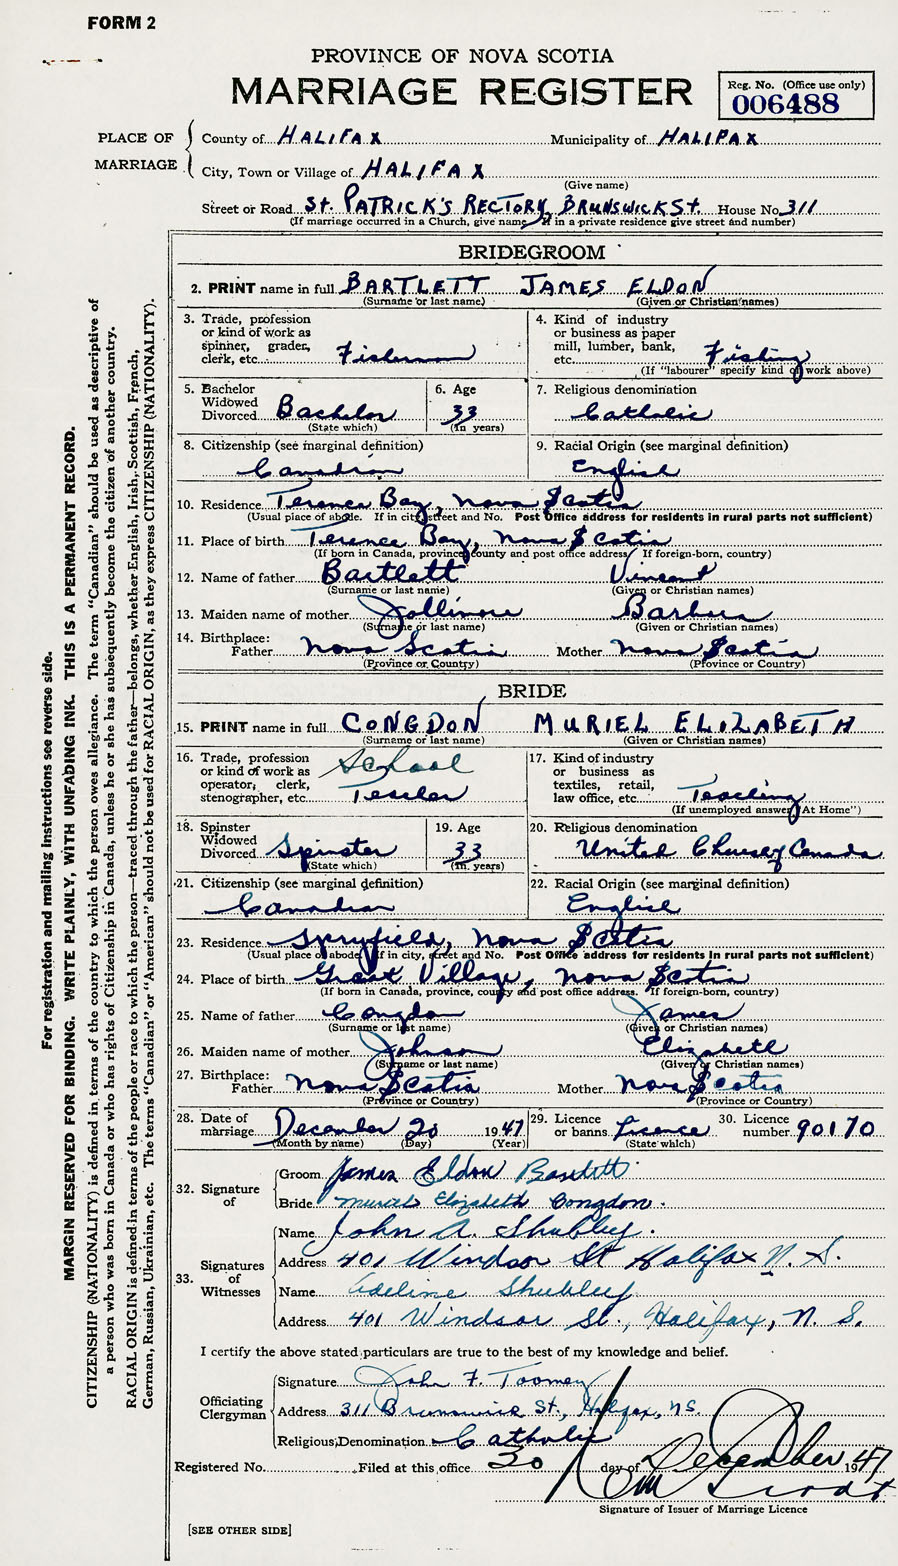 FORM 2
PROVINCE OF NOVA SCOTIA
MARRIAGE REGISTER
Reg. No. (Office use only)
006488
PLACE OF MARRIAGE
County of HALIFAX Municipality of HALIFAX
City, Town or Village of HALIFAX
(Give name)
Street or Road St. PATRICK'S RECTORY, BRUNSWICK St. House No. 311
(If marriage occurred in a Church, give name. If in a private residence give street and number)
BRIDEGROOM
2. PRINT name in full BARTLETT JAMES ELDON
(Surname or last name) (Given or Christian names)
3. Trade, profession or kind of work as spinner, grader, clerk, etc. Fisherman
4. Kind of industry or business as paper mill, lumber, bank, etc. Fishing
(If "labourer" specify kind of work above)
5. Bachelor Widowed Divorced Bachelor
(State which)
6. Age 33
(In years)
7. Religious denomination
Catholic
8. Citizenship (see marginal definition)
Canadian
9. Racial Origin (see marginal definition)
English
10. Residence Terence Bay, Nova Scotia
(Usual place of abode. If in city street and No. Post Office address for residents in rural parts not sufficient)
11. Place of birth Terence Bay, Nova Scotia
(If born in Canada, province, county and post office address. If foreign-born, country)
12. Name of father Bartlett Vincent
(Surname or last name) (Given or Christian names)
13. Maiden name of mother Jollimore Barbara
(Surname or last name) (Given or Christian names)
14. Birthplace:
Father Nova Scotia Mother Nova Scotia
(Province or Country) (Province or Country)
BRIDE
15. PRINT name in full CONGDON MURIEL ELIZABETH
(Surname or last name) (Given or Christian names)
16. Trade, profession or kind of work as operator, clerk, stenographer, etc. School Teacher
17. Kind of industry or business as textiles, retail, law office, etc. Teaching
(If unemployed answer "At Home")
18. Spinster Widowed Divorced Spinster
(State which)
19. Age 33
(In. years)
20. Religious denomination
United Church of Canada
21. Citizenship (see marginal definition)
Canadian
22. Racial Origin (see marginal definition)
English
23. Residence Spryfield, Nova Scotia
(Usual place of abode. If in city, street and No. Post Office address for residents in rural parts not sufficient)
24. Place of birth Great Village, Nova Scotia
(If born in Canada, province, county and post office address. If foreign-born, country)
25. Name of father Congdon James
(Surname or last name) (Given or Christian names)
26. Maiden name of mother Johnson Elizabeth
(Surname or last name) (Given or Christian names)
27. Birthplace:
Father Nova Scotia Mother Nova Scotia
(Province or Country) (Province or Country)
28. Date of marriage December 20 1947
(Month by name) (Day) (Year)
29. Licence or banns Licence
(State which)
30. Licence number 90170
32. Signature of
Groom James Eldon Bartlett
Bride Muriel Elizabeth Congdon.
33. Signatures of Witnesses
Name John A. Shubley.
Address 401 Windsor St Halifax N. S.
Name Adeline Shubley
Address 401 Windsor St., Halifax, N. S.
I certify the above stated particulars are true to the best of my knowledge and belief.
Officiating Clergyman
Signature John F. Toomey
Address 311 Brunswick St., Halifax, NS.
Religious Denomination Catholic
Registered No. Filed at this office 30 day of December 1947
Signature of Issuer of Marriage Licence
[SEE OTHER SIDE]
For registration and mailing instructions see reverse side.
MARGIN RESERVED FOR BINDING. WRITE PLAINLY, WITH UNFADING INK. THIS IS A PERMANENT RECORD.
CITIZENSHIP (NATIONALITY) is defined in terms of the country to which the person owes allegiance. The term "Canadian" should be used as descriptive of
a person who was born in Canada or who has rights of Citizenship in Canada, unless he or she has subsequently become the citizen of another country.
RACIAL ORIGIN is defined in terms of the people or race to which the person—traced through the father—belongs, whether English, Irish, Scottish, French,
German, Russian, Ukrainian, etc. The terms "Canadian" or "American" should not be used for RACIAL ORIGIN, as they express CITIZENSHIP (NATIONALITY).